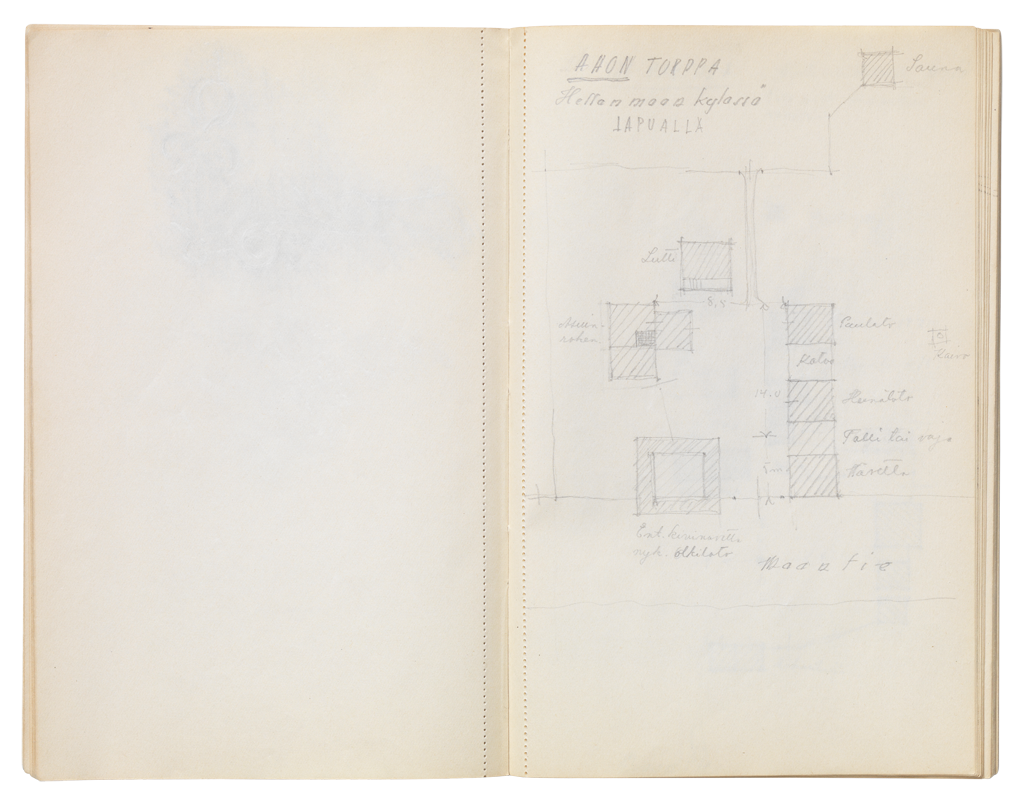 AHON TORPPA
Hellanmaan kylässä
LAPUALLA
Sauna
Lutti
8,5
Asuin-
rakenn.
Katos
Kaivo
14.0
Heinälato
Talli tai vaja
5m
Navetta
Ent. kivinavetta
nyk. olkilato
Maantie